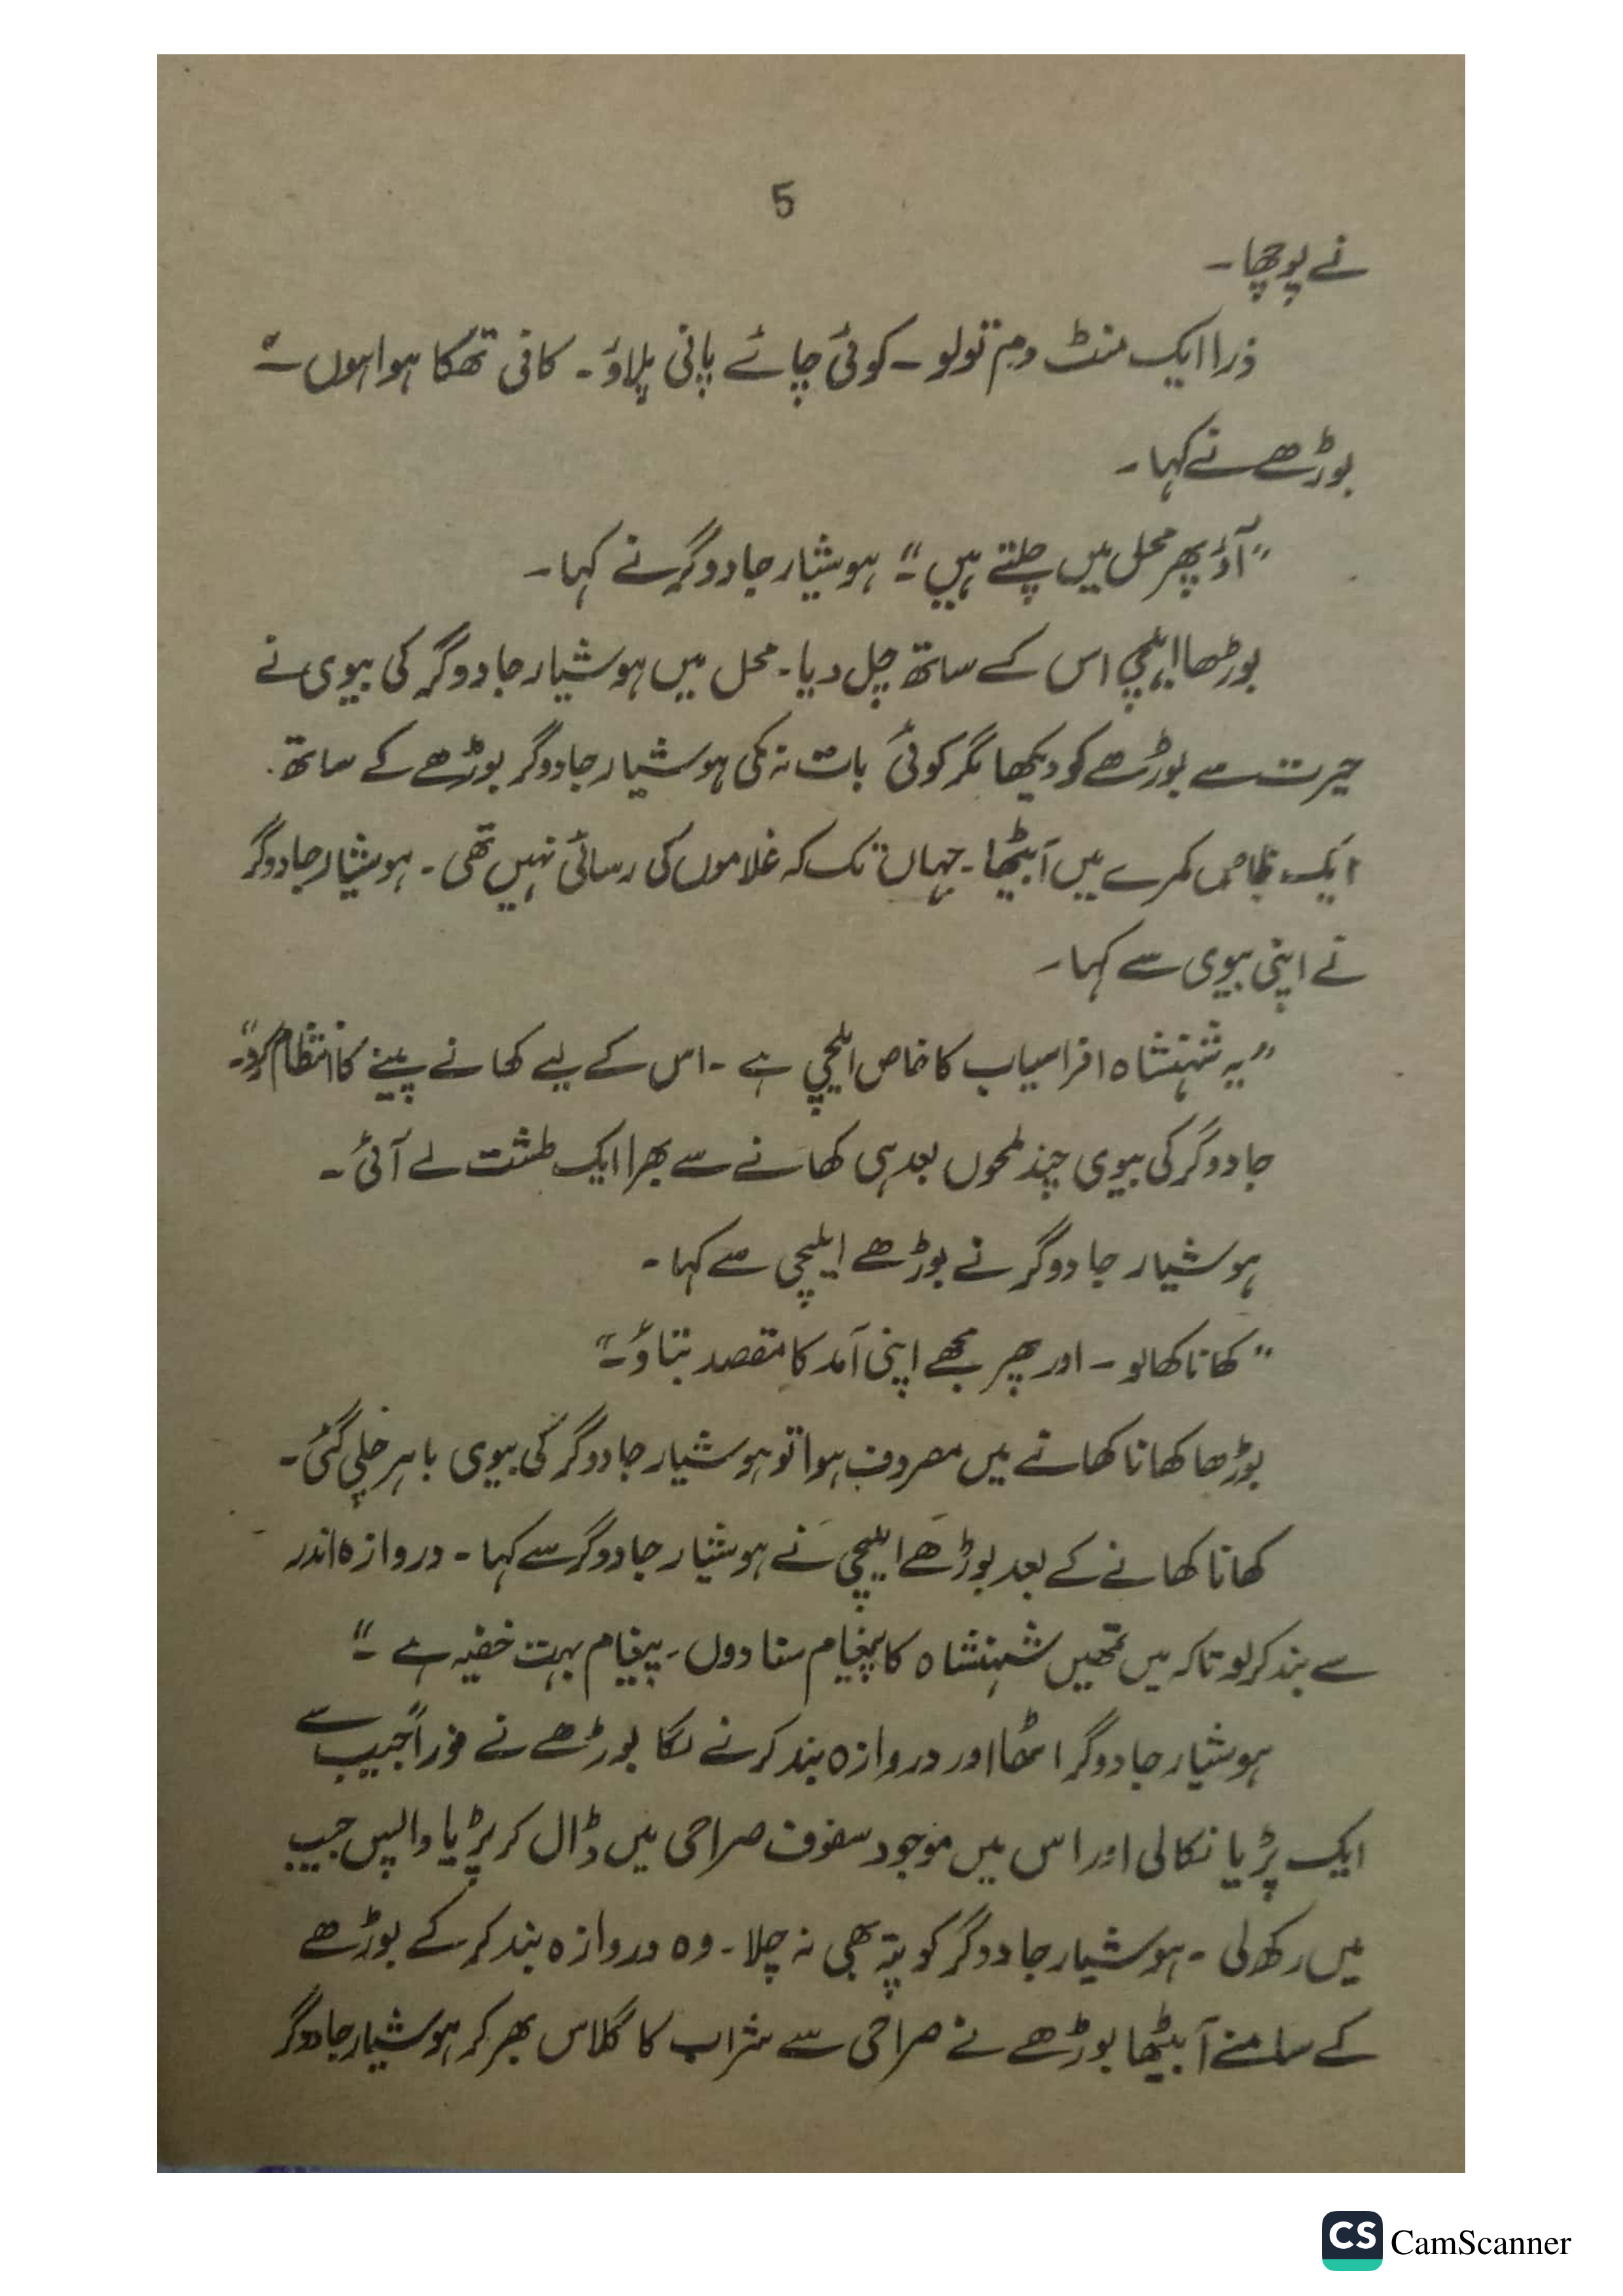 5
نے پوچھا۔
ذرا ایک منٹ دم تو لو۔ کوئی چائے پانی پلاؤ۔ کافی تھکا ہوا ہوں۔"
بوڑھے نے کہا۔
"آؤ پھر محل میں چلتے ہیں۔" ہوشیار جادوگر نے کہا۔
بوڑھا ایلچی اس کے ساتھ چل دیا۔ محل میں ہوشیار جادوگر کی بیوی نے
حیرت سے بوڑھے کو دیکھا مگر کوئی بات نہ کی ہوشیار جادوگر بوڑھے کے ساتھ
ایک خاص کمرے میں آ بیٹھا۔ جہاں تک کہ غلاموں کی رسائی نہیں تھی۔ ہوشیار جادوگر
نے اپنی بیوی سے کہا۔
"یہ شہنشاہ افراسیاب کا خاص ایلچی ہے۔ اس کے لیے کھانے پینے کا انتظام کرو۔"
جادوگر کی بیوی چند لمحوں بعد ہی کھانے سے بھرا ایک طشت لے آئی۔
ہوشیار جادوگر نے بوڑھے ایلچی سے کہا۔
"کھانا کھالو۔ اور پھر مجھے اپنی آمد کا مقصد بتاؤ۔"
بوڑھا کھانا کھانے میں مصروف ہوا تو ہوشیار جادوگر کی بیوی باہر چلی گئی۔
کھانا کھانے کے بعد بوڑھے ایلچی نے ہوشیار جادوگر سے کہا۔ دروازہ اندر
سے بند کر لو تاکہ میں تمھیں شہنشاہ کا پیغام سنا دوں۔ پیغام بہت خفیہ ہے۔"
ہوشیار جادوگر اٹھا اور دروازہ بند کرنے لگا بوڑھے نے فوراً جیب سے
ایک پڑیا نکالی اور اس میں موجود سفوف صراحی میں ڈال کر پڑیا واپس جیب
میں رکھ لی۔ ہوشیار جادوگر کو پتہ بھی نہ چلا۔ وہ دروازہ بند کر کے بوڑھے
کے سامنے آ بیٹھا بوڑھے نے صراحی سے شراب کا گلاس بھر کر ہوشیار جادوگر
CS CamScanner